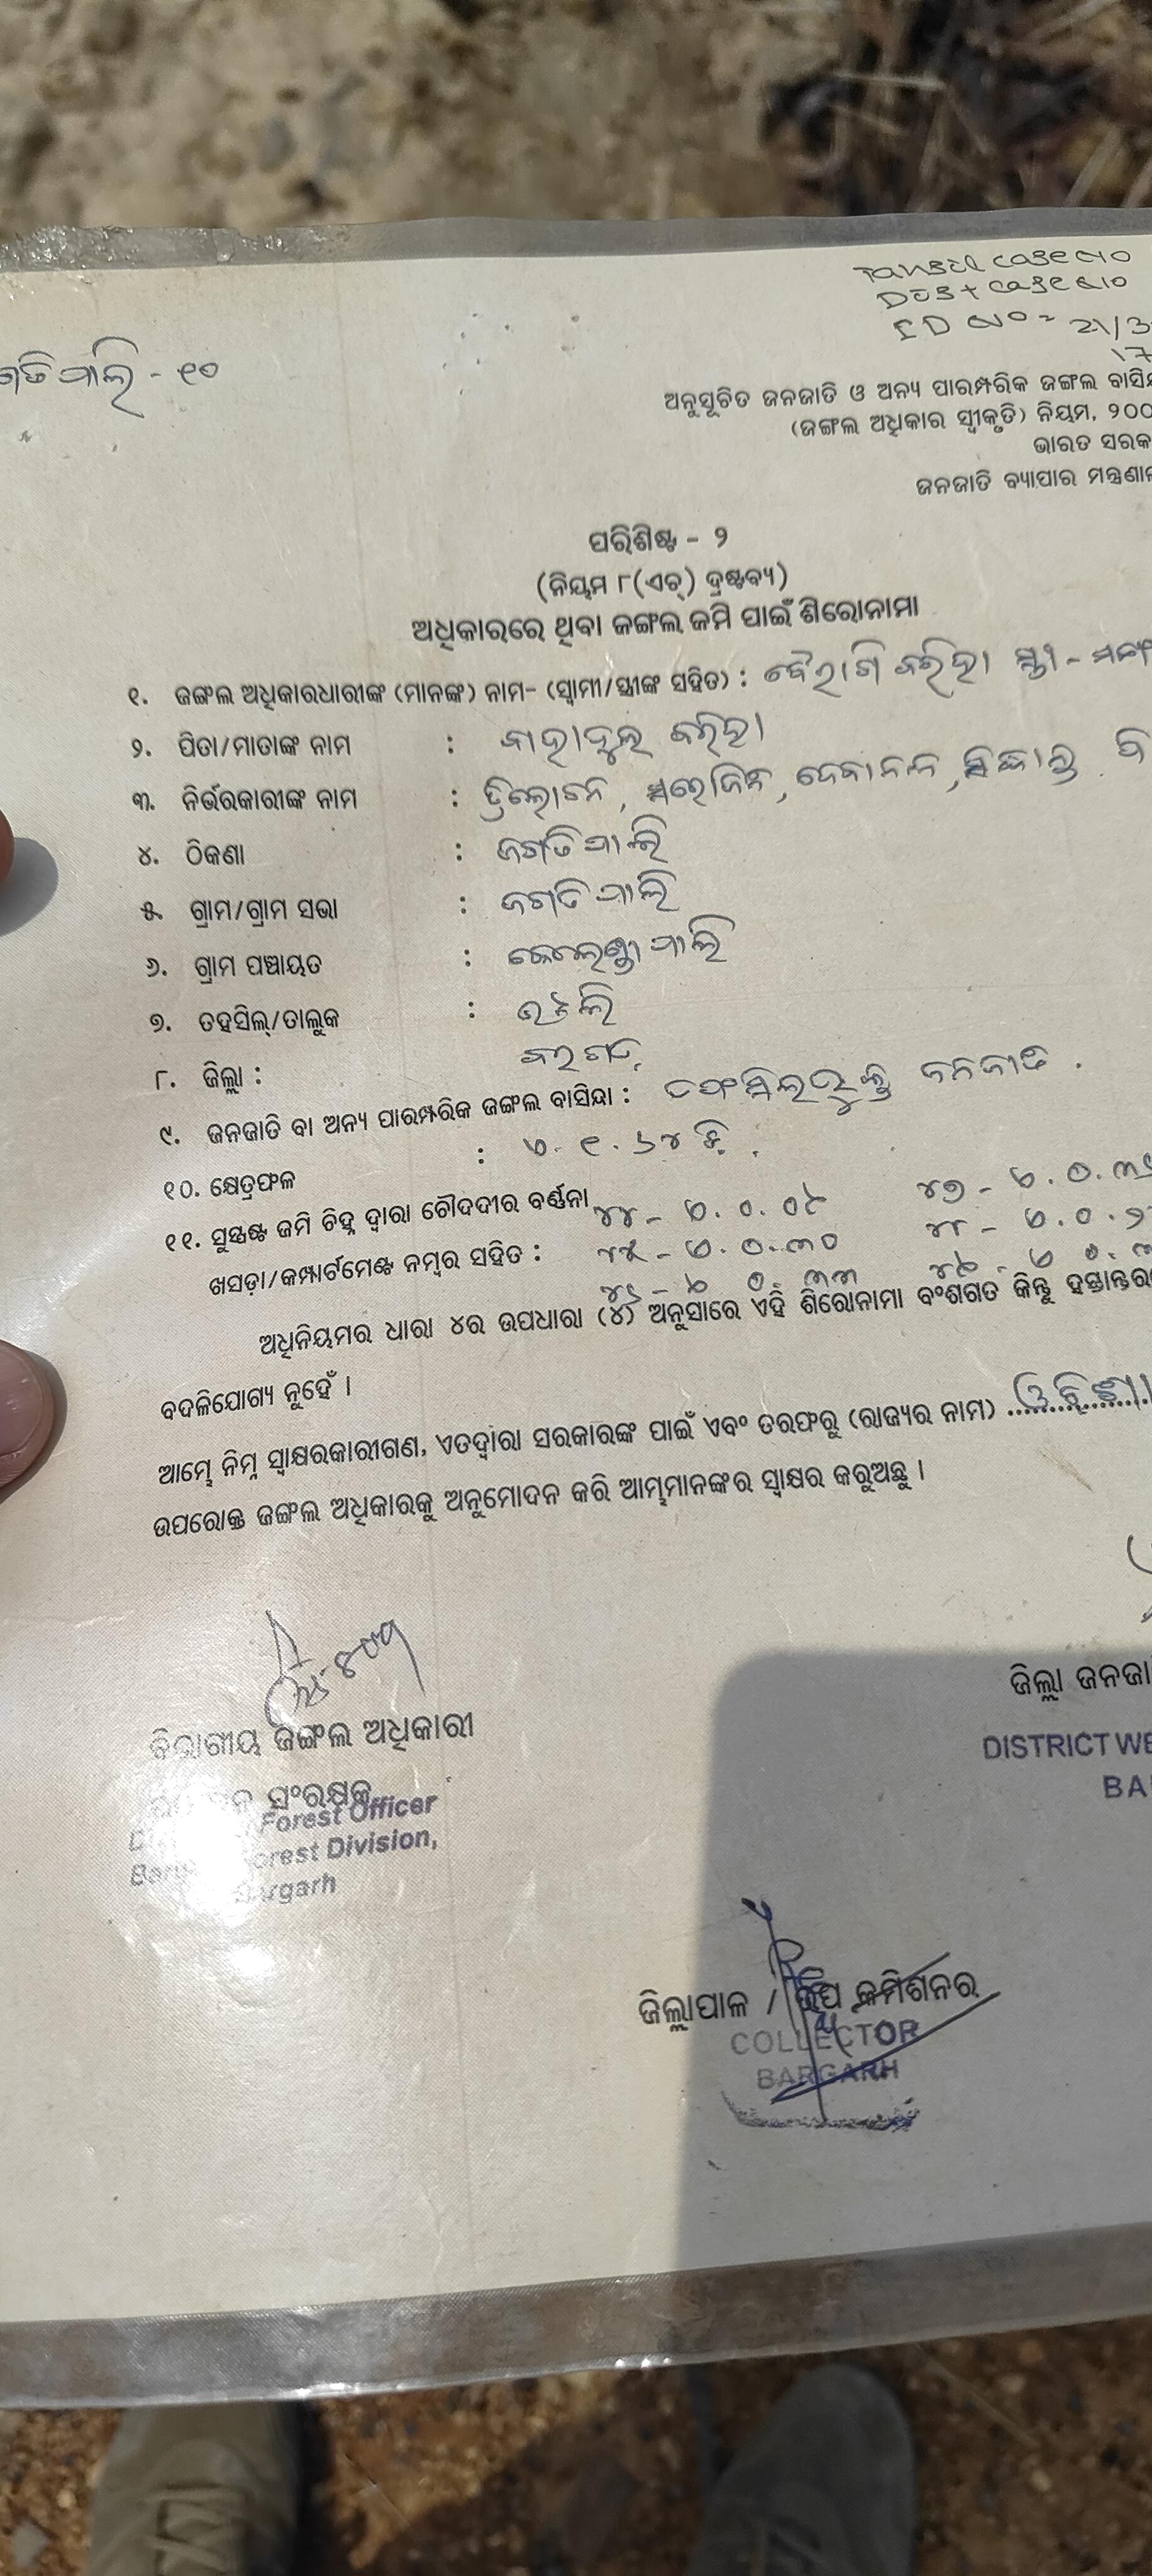 Tahsil case No
Dist case No
ID No - 21/3
17
ଗତିପାଲି - ୧୦
ଅନୁସୂଚିତ ଜନଜାତି ଓ ଅନ୍ୟ ପାରମ୍ପରିକ ଜଙ୍ଗଲ ବାସିନ୍ଦା
(ଜଙ୍ଗଲ ଅଧିକାର ସ୍ୱୀକୃତି) ନିୟମ, ୨୦୦
ଭାରତ ସରକା
ଜନଜାତି ବ୍ୟାପାର ମନ୍ତ୍ରଣା
ପରିଶିଷ୍ଟ - ୨
(ନିୟମ ୮(ଏଚ୍) ଦ୍ରଷ୍ଟବ୍ୟ)
ଅଧିକାରରେ ଥିବା ଜଙ୍ଗଲ ଜମି ପାଇଁ ଶିରୋନାମା
୧. ଜଙ୍ଗଲ ଅଧିକାରଧାରୀଙ୍କ (ମାନଙ୍କ) ନାମ- (ସ୍ୱାମୀ/ସ୍ତ୍ରୀଙ୍କ ସହିତ) : ବୈରାଗି ବରିହା
୨. ପିତା/ମାତାଙ୍କ ନାମ : ବାହାଦୁଲ ବରିହା
୩. ନିର୍ଭରକାରୀଙ୍କ ନାମ : ତ୍ରିଲୋଚନ, ସରୋଜିନୀ, ଦେବାନନ୍ଦ,
୪. ଠିକଣା : ଜଗତିପାଲି
୫. ଗ୍ରାମ/ଗ୍ରାମ ସଭା : ଜଗତିପାଲି
୬. ଗ୍ରାମ ପଞ୍ଚାୟତ : କେଲେଣ୍ଡାପାଲି
୭. ତହସିଲ୍/ତାଲୁକ : ଭଟଲି
୮. ଜିଲ୍ଲା : ବରଗଡ଼
୯. ଜନଜାତି ବା ଅନ୍ୟ ପାରମ୍ପରିକ ଜଙ୍ଗଲ ବାସିନ୍ଦା : ତଫସିଲଭୁକ୍ତ ଜନଜାତି .
୧୦. କ୍ଷେତ୍ରଫଳ : ଏ. ୧. ୬୪ ଡି.
୧୧. ସୁସ୍ପଷ୍ଟ ଜମି ଚିହ୍ନ ଦ୍ୱାରା ଚୌଦଦୀର ବର୍ଣ୍ଣନା
ଖସଡ଼ା/କମ୍ପାର୍ଟମେଣ୍ଟ ନମ୍ବର ସହିତ :
ଅଧିନିୟମର ଧାରା ୪ର ଉପଧାରା (୪) ଅନୁସାରେ ଏହି ଶିରୋନାମା ବଂଶଗତ କିନ୍ତୁ ହସ୍ତାନ୍ତର
ବଦଳିଯୋଗ୍ୟ ନୁହେଁ ।
ଆମ୍ଭେ ନିମ୍ନ ସ୍ୱାକ୍ଷରକାରୀଗଣ, ଏତଦ୍ୱାରା ସରକାରଙ୍କ ପାଇଁ ଏବଂ ତରଫରୁ (ରାଜ୍ୟର ନାମ) ...ଓଡ଼ିଶା...
ଉପରୋକ୍ତ ଜଙ୍ଗଲ ଅଧିକାରକୁ ଅନୁମୋଦନ କରି ଆମ୍ଭମାନଙ୍କର ସ୍ୱାକ୍ଷର କରୁଅଛୁ ।
ଜିଲ୍ଲା ଜନଜା
DISTRICT WE
BA
ବିଭାଗୀୟ ଜଙ୍ଗଲ ଅଧିକାରୀ
ସଂରକ୍ଷକ
Forest Officer
Forest Division,
Bargarh
ଜିଲ୍ଲାପାଳ / ଡିପ କମିଶନର
COLLECTOR
BARGARH